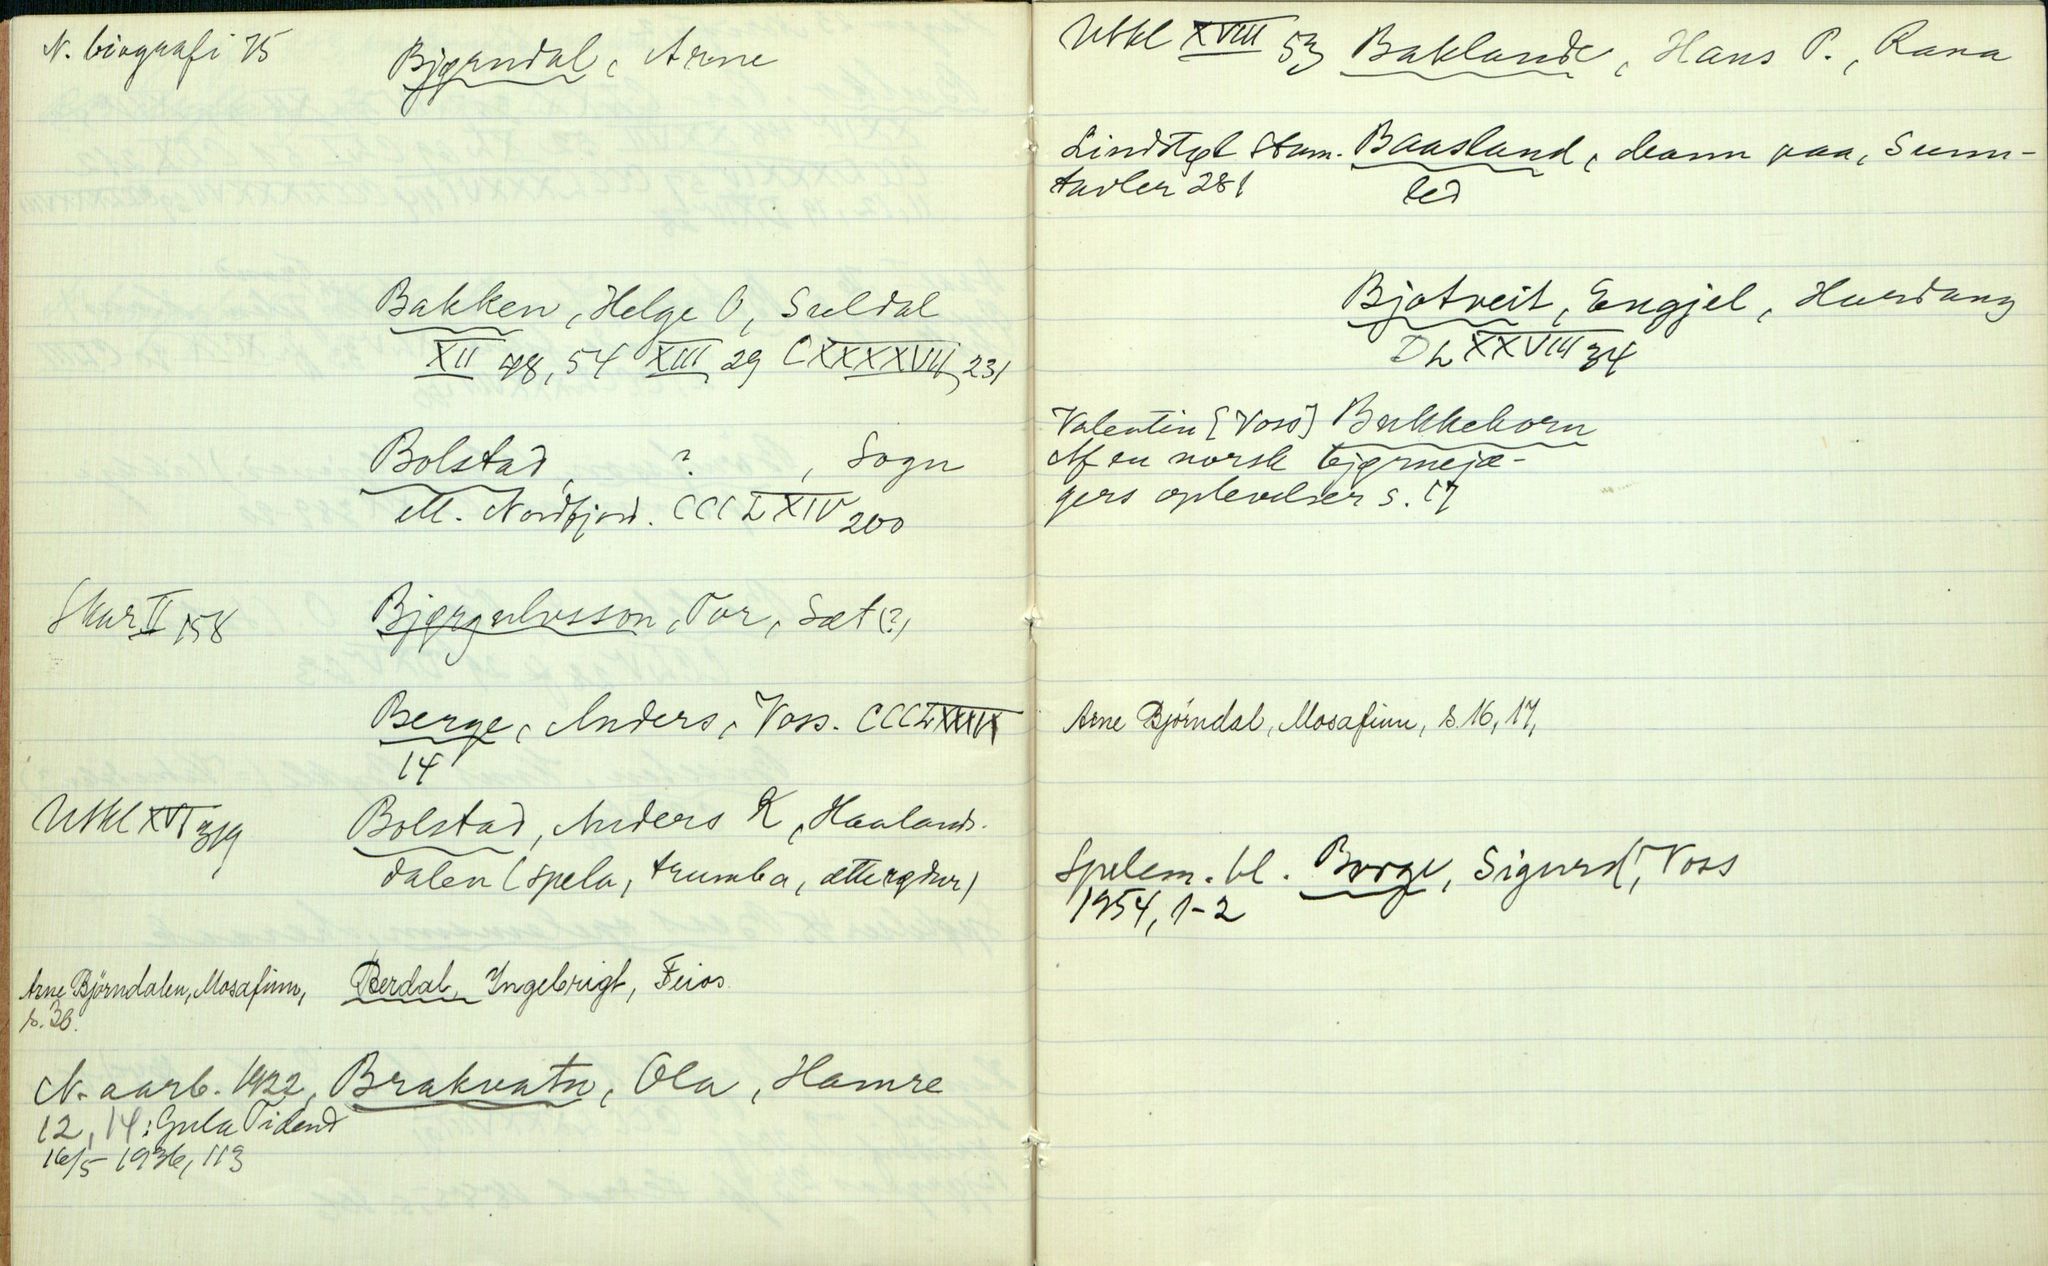 N. biografi 75 Bjørndal, Arne
Bakken, Helge O, Suldal
XII 48, 54 XIII 29 CXXXXVIII 231
Bolstad, ? , Sogn
M. Nordfjord. CCCLXIV 200
Skar II 158 Bjørgulvsson, Tor, Sæt (?)
Berge, Anders, Voss. CCCLXXXIX
14
Utkl XVI 319 Bolstad, Anders K, Haalands-
dalen (spela, trumba, attergdur)
Arne Björndalen, Mosafinn, Berdal, Ingebrigt, Feios
s. 36.
N. aarb. 1922, Brakvatn, Ola, Hamre
12, 14; Gula Tidend
16/5 1936, 113
Utkl XVIII 53 Baklande, Hans P., Rana
Lindstøl Stam- Baasland, mann paa, Sunn-
tavler 281 led
Bjotveit, Engjel, Hardang
DLXXVIII 34
Valentin [Voss] Bukkehorn
Af en norsk bjørnejæ-
gers oplevelser s. 17
Arne Björndal, Mosafinn, s. 16, 17,
Spelem. bl. Borge, Sigurd, Voss
1954, 1-2